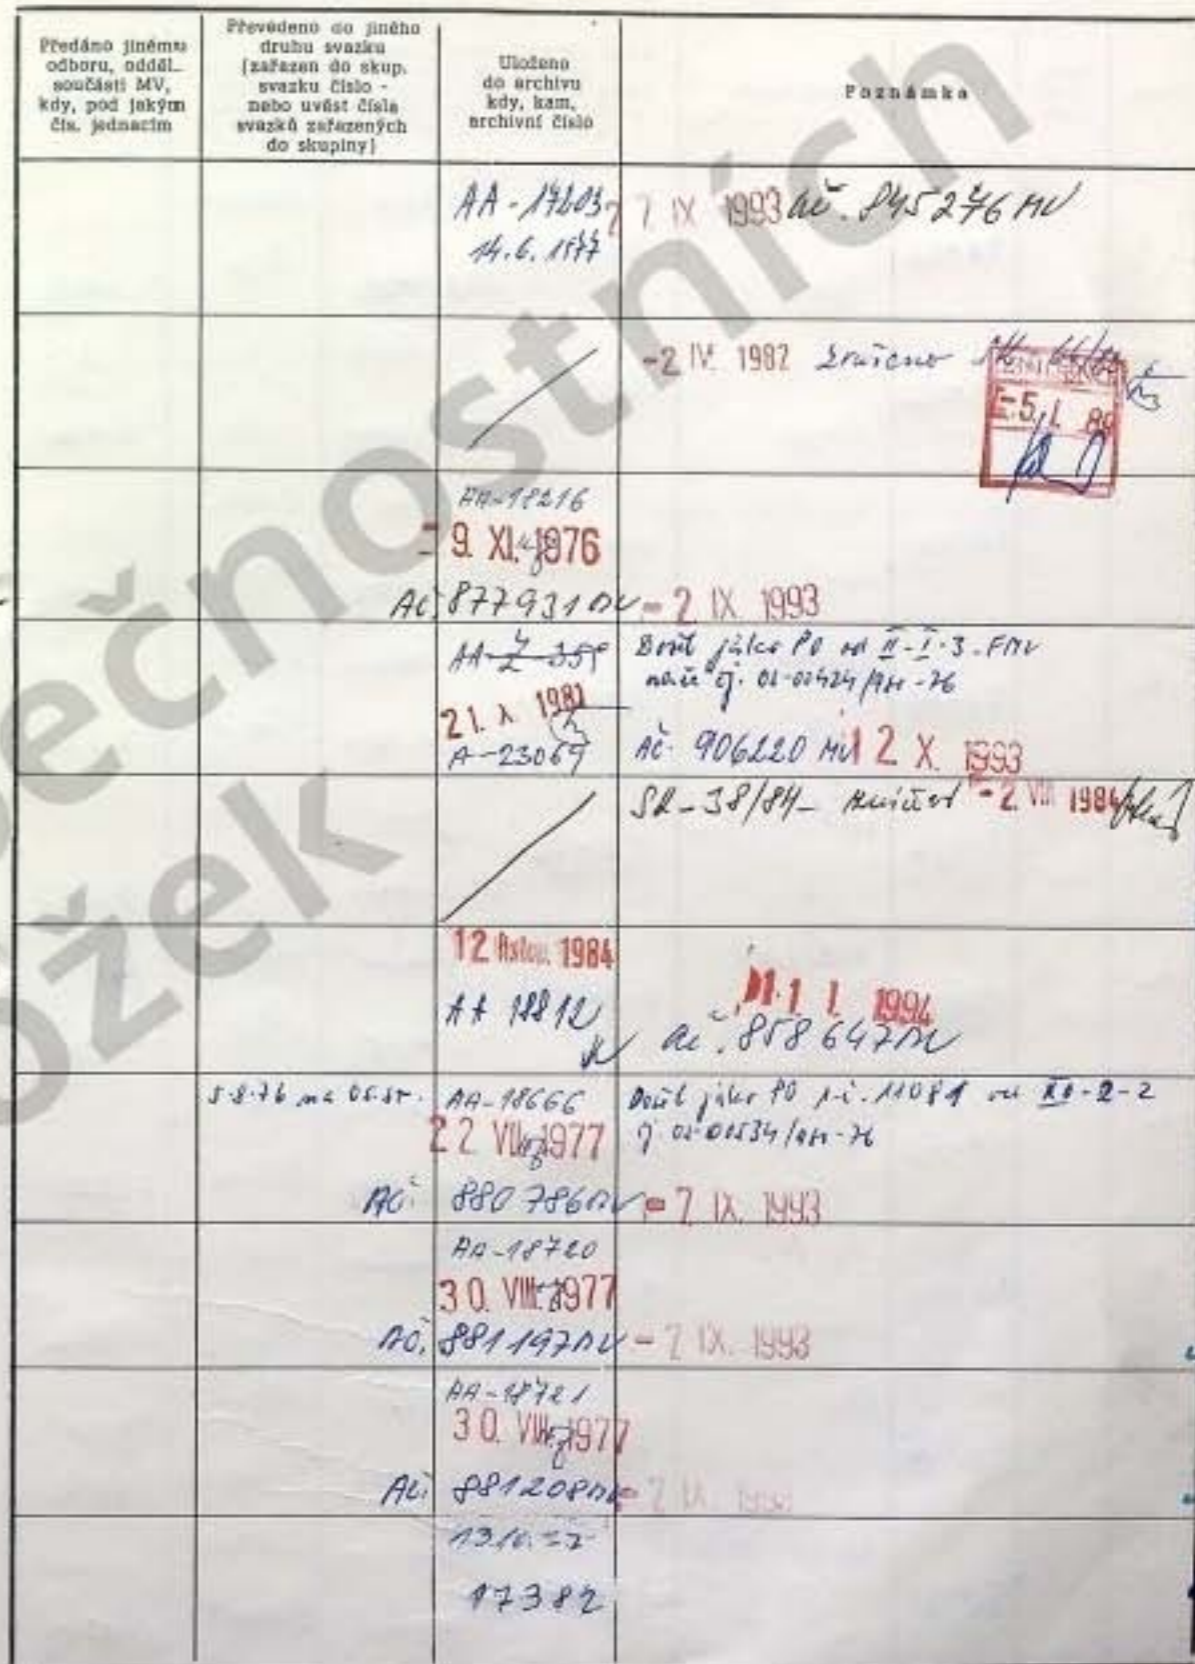 Předáno jinému
odboru, odděl.
součásti MV,
kdy, pod jakým
čís. jednacím
Převedeno do jiného
druhu svazku
(zařazen do skup.
svazku číslo -
nebo uvést čísla
svazků zařazených
do skupiny)
Uloženo
do archivu
kdy, kam,
archivní číslo
Poznámka
AA-17203
14.6.1977
7 IX 1993 ač. 845276 MV
-2 IV. 1982 zrušeno
-5. I. 84
AA-18216
-9. XI. 1976
AČ. 877931 MV -2 IX. 1993
21. X. 1981
A-23069
jako PO od II-I-3. FMV
AČ. 906220 MV 12 X. 1993
SR-38/84- -2. VIII 1984
12 1984
AA 18812
1994
ač. 858647 MV
5.8.76 na
AA-18666
22 VII 1977
jako PO
AČ. 880786 MV -7 IX. 1993
AA-18720
30. VIII. 1977
AČ. 881197 MV -7 IX. 1993
AA-18721
30. VIII. 1977
AČ. 881208 MV
17382
ečnostních
ožek